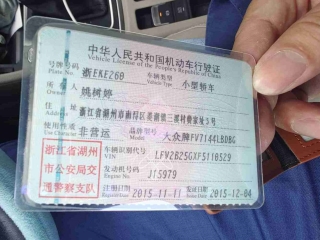 中华人民共和国机动车行驶证
Vehicle License of the People's Republic of China
号牌号码 浙EKE260 车辆类型 小型轿车
Plate No. Vehicle Type
所有人 姚树婷
Owner
住址 浙江省湖州市南浔区
Address
使用性质 非营运 品牌型号 大众牌FV7144LBDBG
Use Character Model
浙江省湖州 车辆识别代号 LFV2B25GXF5110529
VIN
市公安局交 发动机号码 J15979
Engine No.
通警察支队 注册日期 2015-11-11 发证日期 2015-12-04
Register Date Issue Date